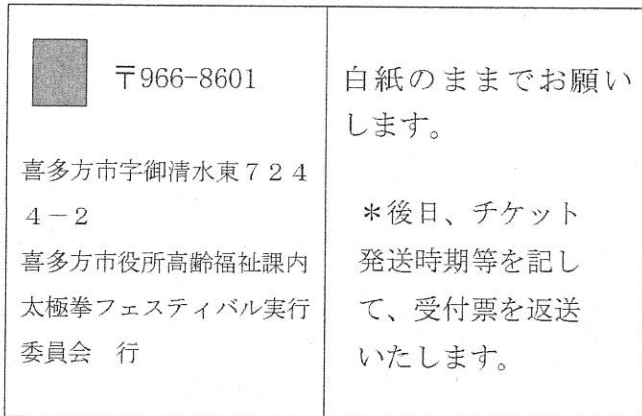 〒966-8601
喜多方市字御清水東７２４
４－２
喜多方市役所高齢福祉課内
太極拳フェスティバル実行
委員会　行
白紙のままでお願い
します。
＊後日、チケット
発送時期等を記し
て、受付票を返送
いたします。